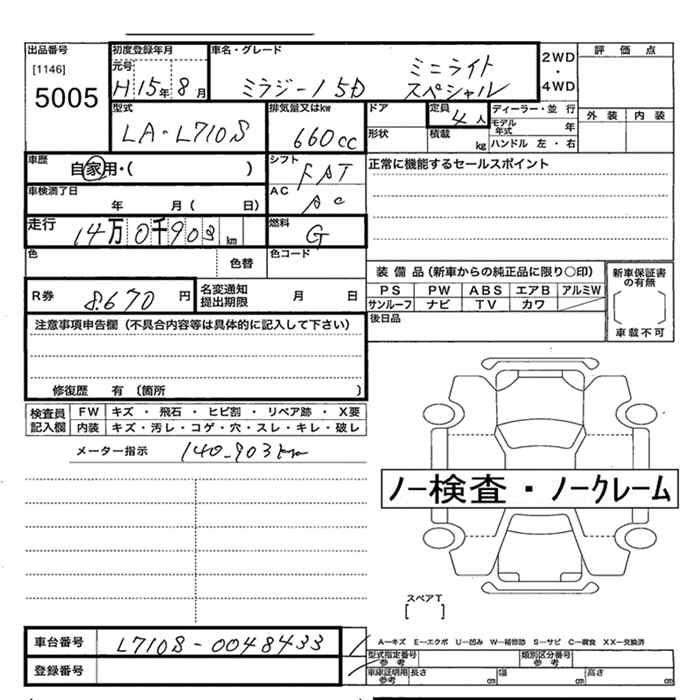 出品番号 初度登録年月 車名・グレード 2WD・4WD 評価点
[1146] 元号
5005 H 15年 8月 ミラジーノ 5D ミニライト スペシャル
型式 排気量又はkw ドア 定員 ディーラー・並行 外装 内装
LA-L710S 660cc 4人 モデル年式 年
形状 積載 kg ハンドル 左・右
車歴 シフト 正常に機能するセールスポイント
自家用・( ) FAT
車検満了日 AC
年 月( 日) AC
走行 燃料
14万0千903km G
色 色替 色コード
装備品(新車からの純正品に限り○印) 新車保証書の有無
R券 8670円 名変通知提出期限 月 日 PS PW ABS エアB アルミW
サンルーフ ナビ TV カワ
注意事項申告欄(不具合内容等は具体的に記入して下さい) 後日品 車載不可
修復歴 有 (箇所 )
検査員記入欄 FW キズ・飛石・ヒビ割・リペア跡・X要
内装 キズ・汚レ・コゲ・穴・スレ・キレ・破レ
メーター指示 140-903km
ノー検査・ノークレーム
スペアT
[ ]
車台番号 L710S-0048433
A―キズ E―エクボ U―凹み W―補修跡 S―サビ C―腐食 XX―交換済
型式指定番号 参考 類別区分番号 参考
登録番号 車庫証明用 参考 長さ cm 幅 cm 高さ cm